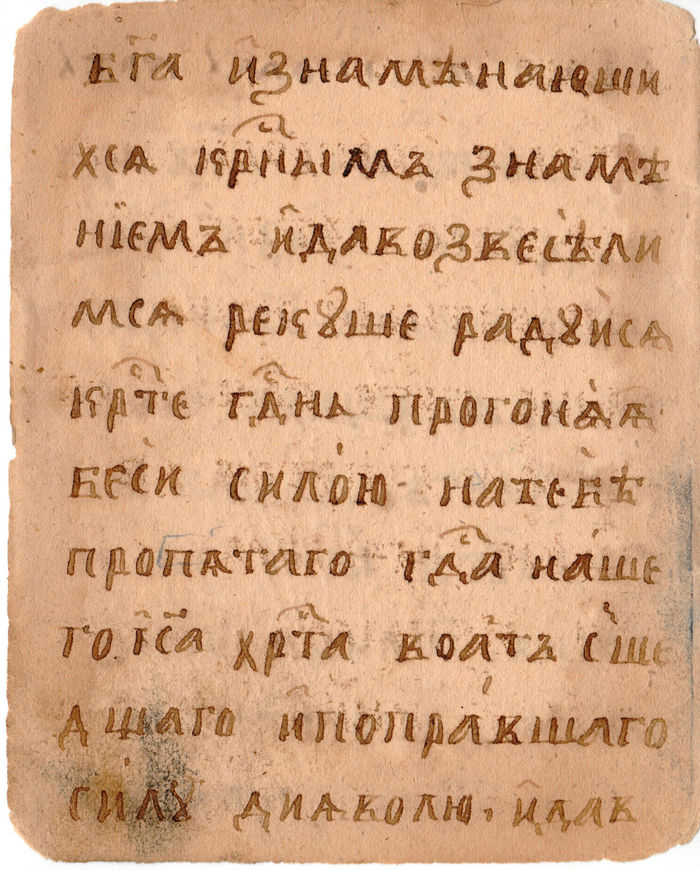 бг҃а изнамѣнающи
хсѧ крⷭ҇нымъ знамѣ
нїемъ и҆давозвесѣли
мсѧ рекꙋще радꙋисѧ
крⷭ҇те гдⷭ҇нь прогонѧѧ
беси силою натебѣ
пропѧтаго гдⷭ҇а наше
го і҆с҃а хрⷭ҇та воатъ сше
дшаго и҆поправшаго
силꙋ диѧволю, и҆дав